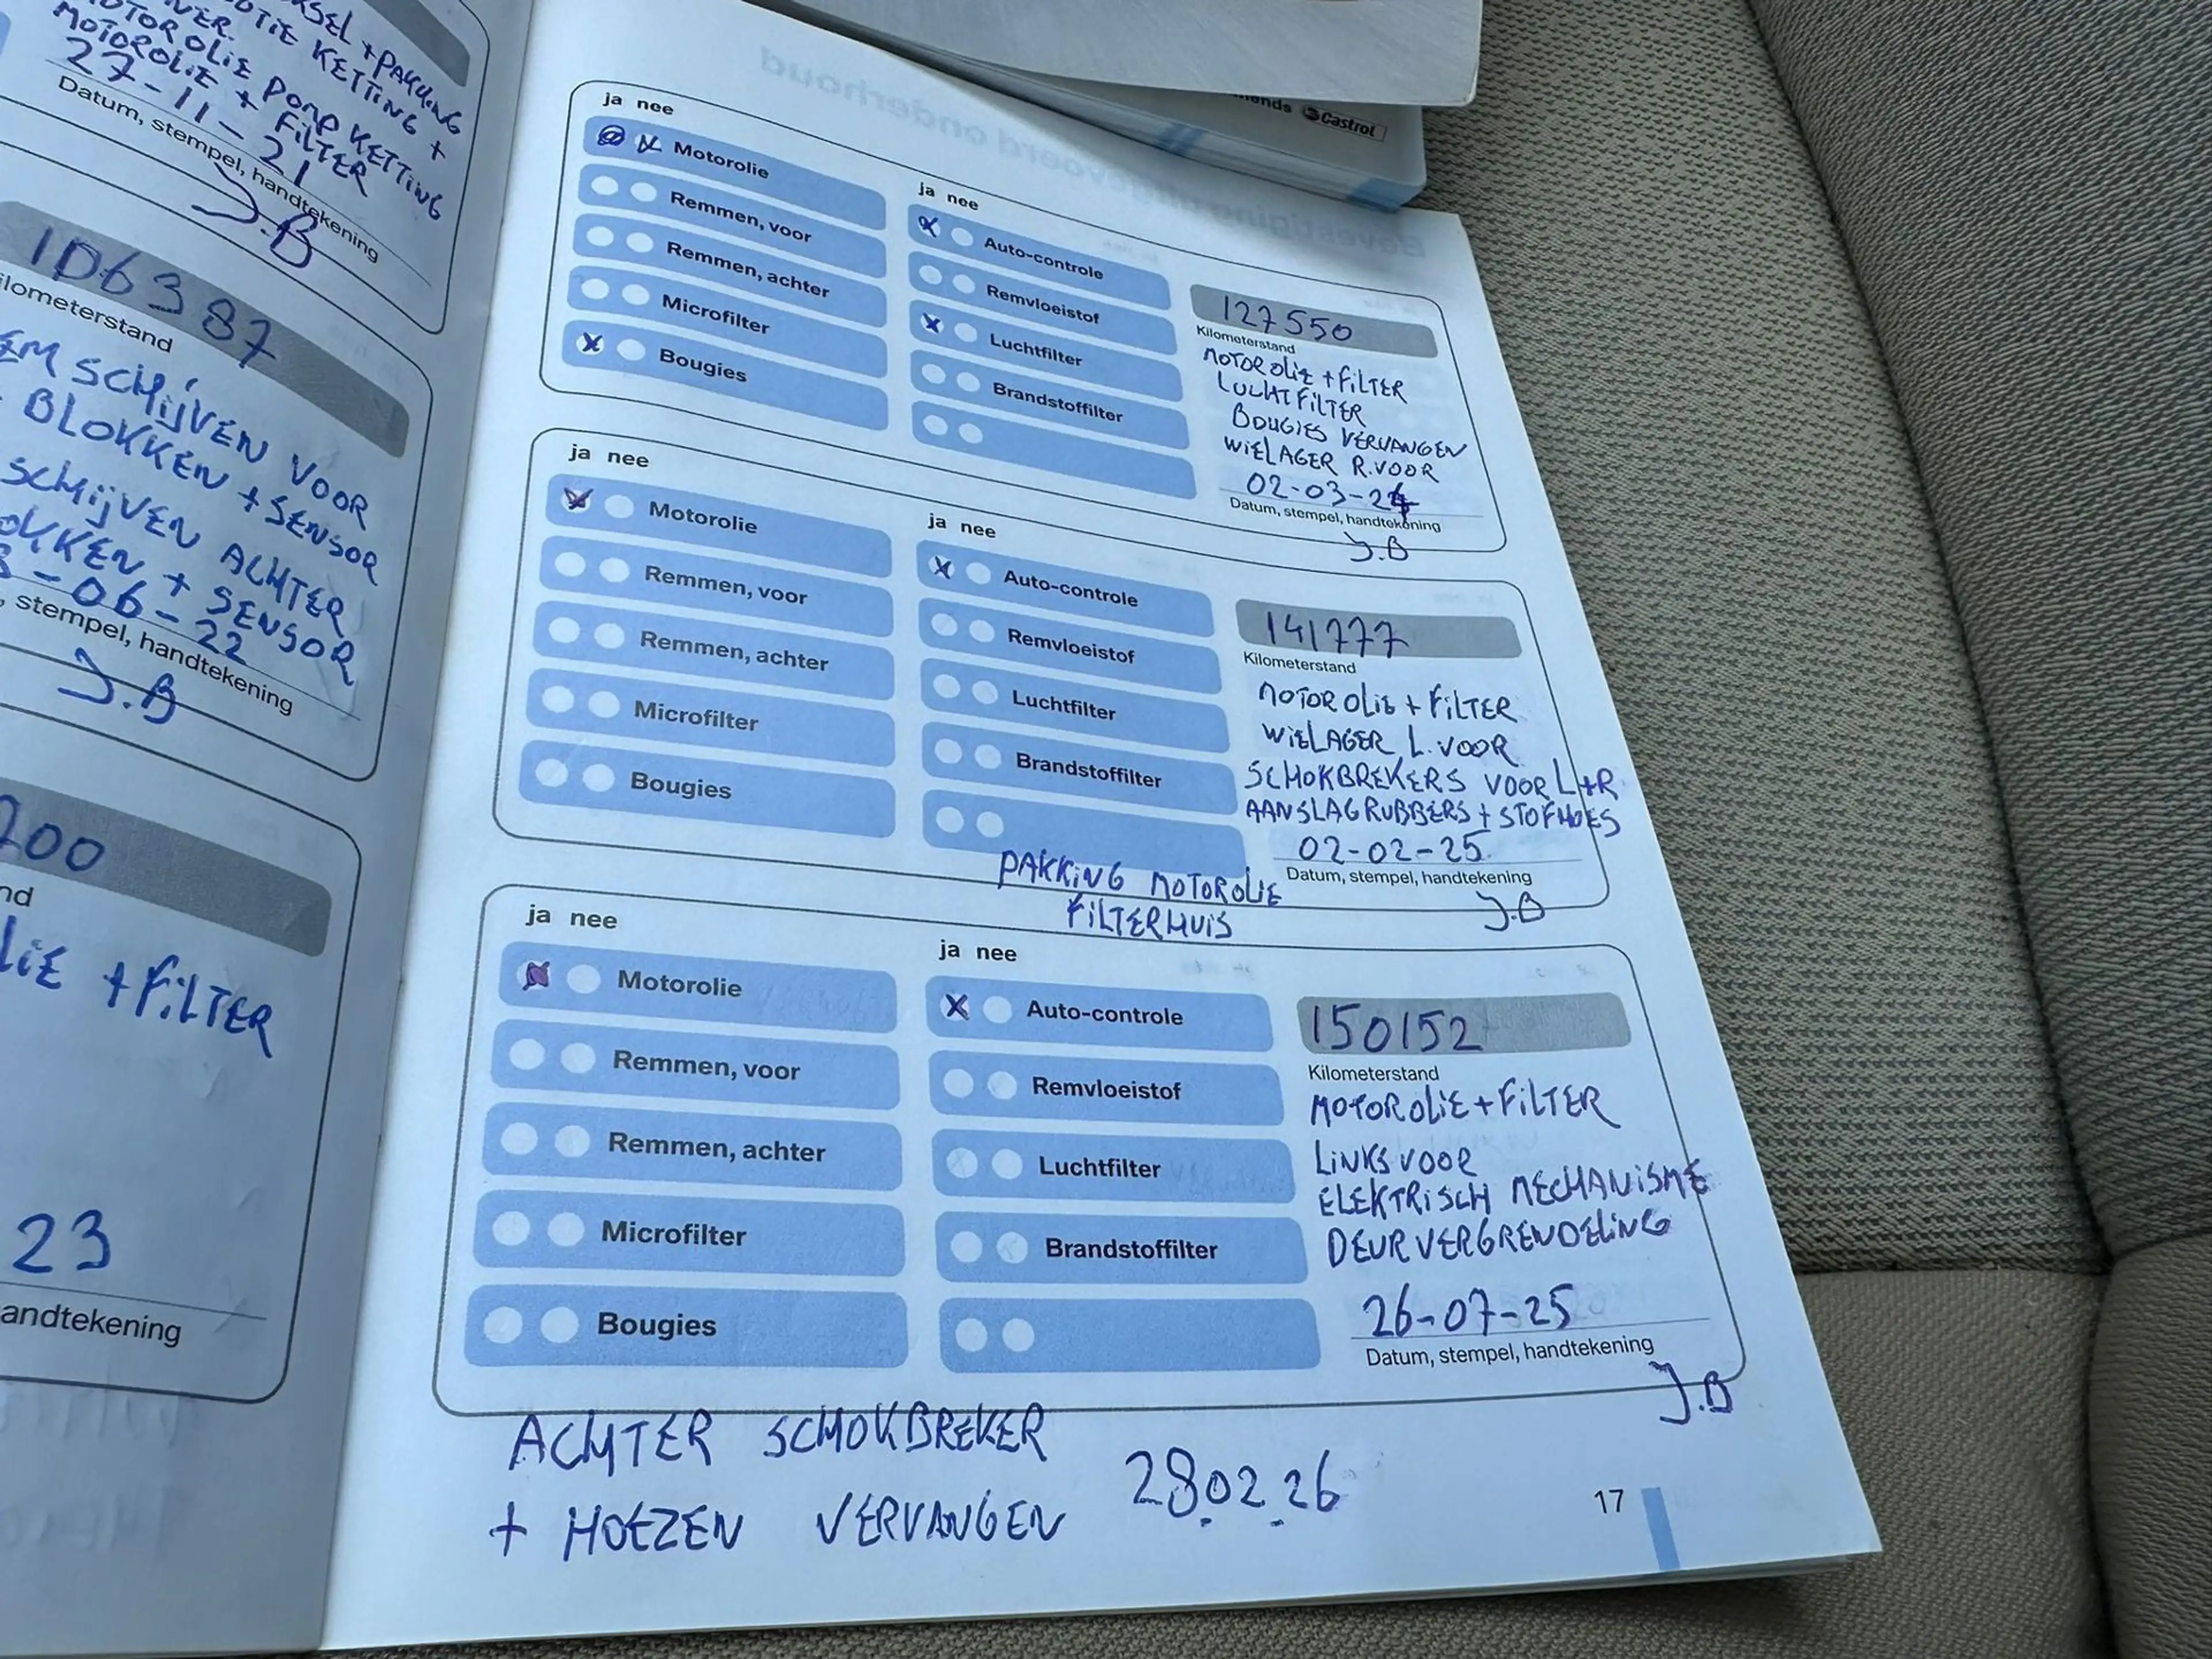 + PAKKING
KETTING +
MOTOROLIE POMP KETTING
MOTOROLIE + FILTER
27-11-21
Datum, stempel, handtekening
J.B
106387
SCHIJVEN VOOR
BLOKKEN + SENSOR
SCHIJVEN ACHTER
+ SENSOR
-06-22
stempel, handtekening
J.B
+ FILTER
23
Castrol
ja nee
Motorolie
Remmen, voor
Remmen, achter
Microfilter
Bougies
ja nee
Auto-controle
Remvloeistof
Luchtfilter
Brandstoffilter
127550
Kilometerstand
MOTOROLIE + FILTER
LUCHTFILTER
BOUGIES VERVANGEN
WIELAGER R.VOOR
02-03-24
Datum, stempel, handtekening
J.B
ja nee
Motorolie
Remmen, voor
Remmen, achter
Microfilter
Bougies
ja nee
Auto-controle
Remvloeistof
Luchtfilter
Brandstoffilter
141777
Kilometerstand
MOTOROLIE + FILTER
WIELAGER L. VOOR
SCHOKBREKERS VOOR L+R
AANSLAGRUBBERS + STOFHOES
02-02-25
Datum, stempel, handtekening
J.B
PAKKING MOTOROLIE
FILTERHUIS
ja nee
Motorolie
Remmen, voor
Remmen, achter
Microfilter
Bougies
ja nee
Auto-controle
Remvloeistof
Luchtfilter
Brandstoffilter
150152
Kilometerstand
MOTOROLIE + FILTER
LINKSVOOR
ELEKTRISCH MECHANISME
DEURVERGRENDELING
26-07-25
Datum, stempel, handtekening
J.B
ACHTER SCHOKBREKER
+ HOEZEN VERVANGEN 28.02.26
17